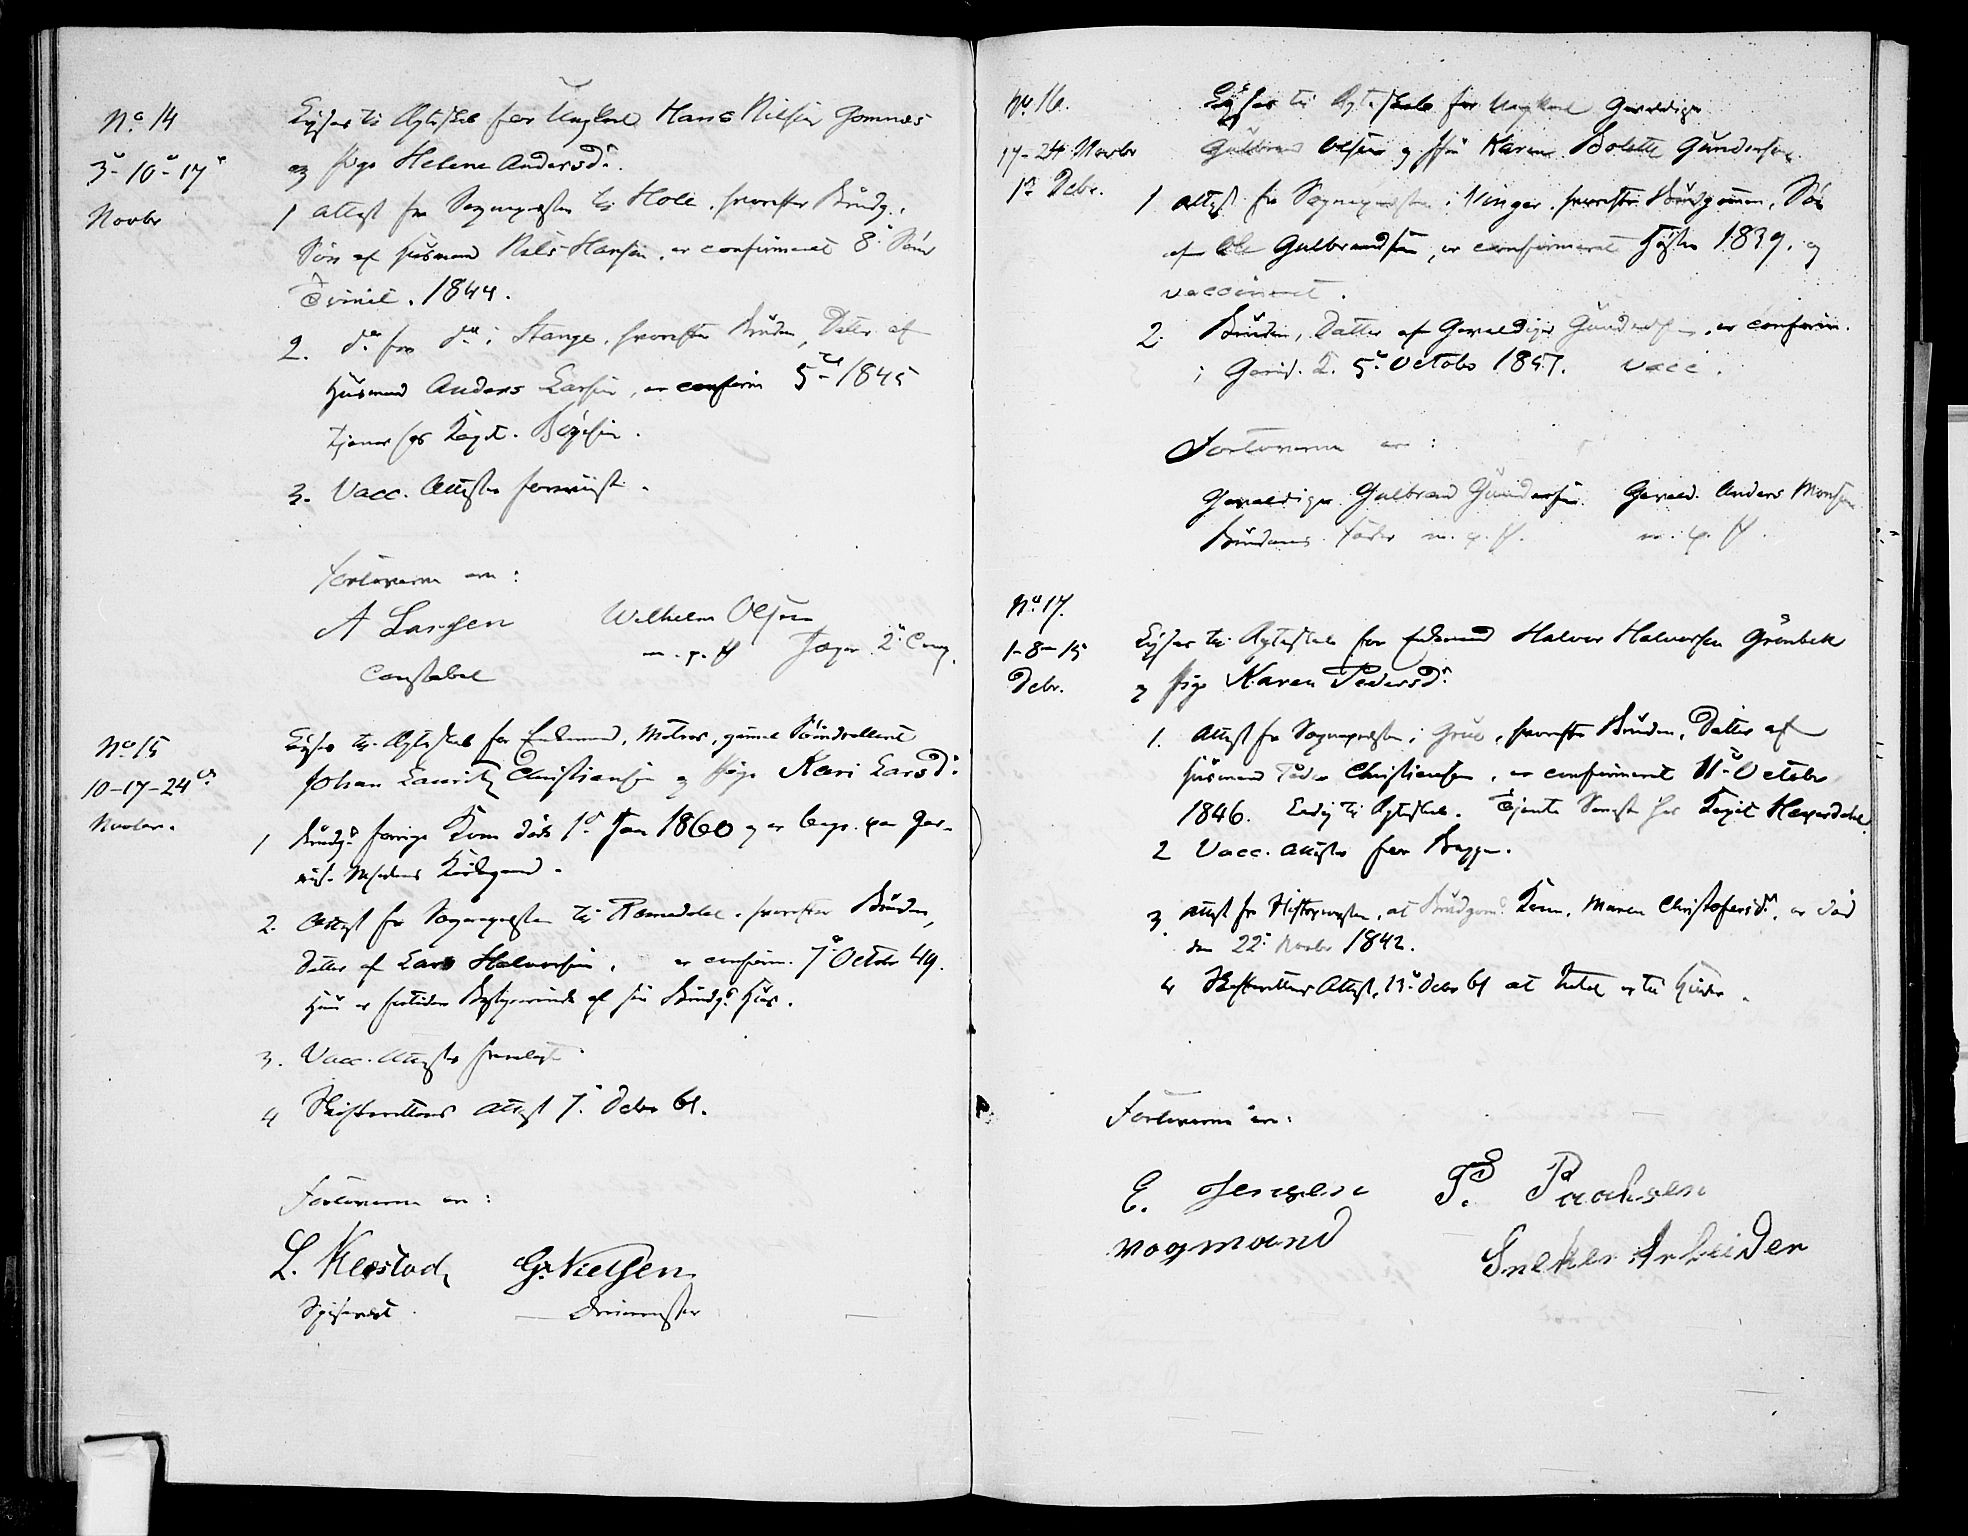 No 14
3 - 10 - 17
Novbr
Lyses til Ægteskab for Ungkarl Hans Nilsen Gomnæs
og Pige Helene Andersd.
1 Attest fra Sognepræsten til Hole, hvorefter Brudg.,
Søn af Husmand Nils Hansen, er confirmeret 8 Sønd
Trinit. 1844.
2. do fra do i Stange, hvorefter Bruden, Datter af
Husmand Anders Larsen, er confirm 5 1845
tjener hos Capt.
3. Vacc. Attester foreviist.
Forloverne ere:
A Larsen
Constabel
Wilhelm Olsen
m. p. P Jæger 2 Comp.
No 15
10-17-24
Novbr.
Lyses til Ægteskab for Enkemand, Matros,
Johan Lauritz Christiansen og Pige Kari Larsd.
1 Brudg. forrige Kone døde 1 Jan 1860 og er begr. paa Gar-
nis. Kirkegaard.
2. Attest fra Sognepræsten til Romedal, hvorefter Bruden,
Datter af Lars Halvorsen, er confirm. 7 Octobr 49.
Hun er for tiden af sin Brudg. Huus.
3. Vacc. Attester fremlagt
4 Skifterettens Attest 7. Debr 61.
Forloverne ere:
L. Kierstad, G. Nielsen
Spisevært
No 16.
17-24 Novbr
1 Debr.
Lyses til Ægteskab for Ungkarl Gevaldiger
Gulbrand Olsen og Karen Bolette Gundersen.
1 Attest fra Sognepræsten i Vinger, hvorefter Brudgommen, Søn
af Ole Gulbrandsen, er confirmeret Høsten 1839, og
vaccineret.
2. Bruden, Datter af Gevaldiger Gundersen, er confirm.
i Garnis. K. 5 Octobr 1857. vacc.
Forloverne ere:
Gevaldiger Gulbrand Gundersen Gevald. Anders Monsen
Brudens Fader m. p. P. m. p. P.
No 17.
1-8-15
Debr.
Lyses til Ægteskab for Enkemand Halvor Halvorsen Grönbek
og Pige Karen Pedersd.
1. Attest fra Sognepræsten i Grue, hvorefter Bruden, Datter af
Husmand Peder Christiansen, er confirmeret 11 Octobr
1846. Ledig til Ægteskab. Tjente Senest hos Capit
2 Vacc. Attester for Begge.
3. Attest fra Stiftsprovsten, at Brudgom. Kone, Maren Christofersd., er død
den 22 Novbr 1842.
4 Skifterettens Attest, 13 Debr 61 at Intet er til Hinder.
Forloverne ere:
E. Jensen P. Paaksen
Vogmand Sneker Arbeider